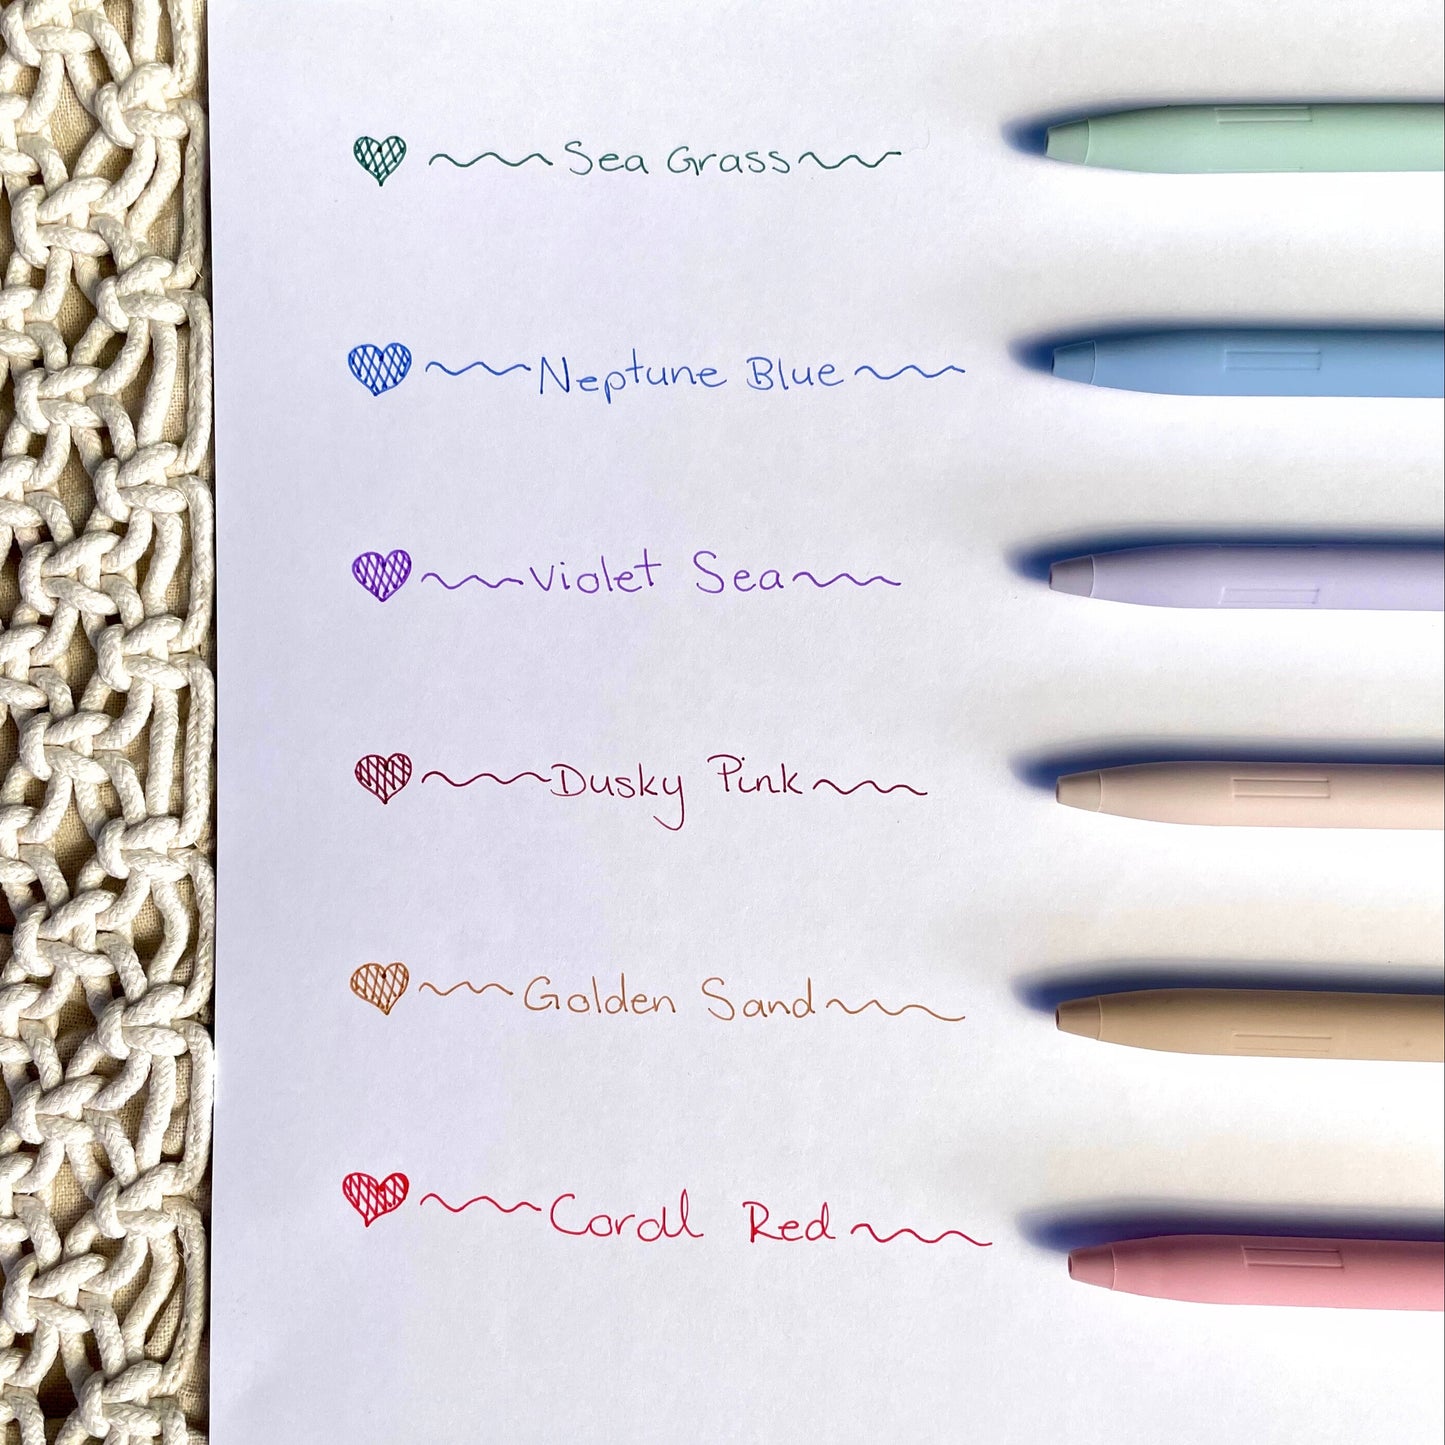 Sea Grass
Neptune Blue
Violet Sea
Dusky Pink
Golden Sand
Coral Red